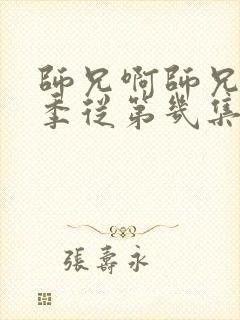 師兄啊師兄
季從第幾集
張壽永